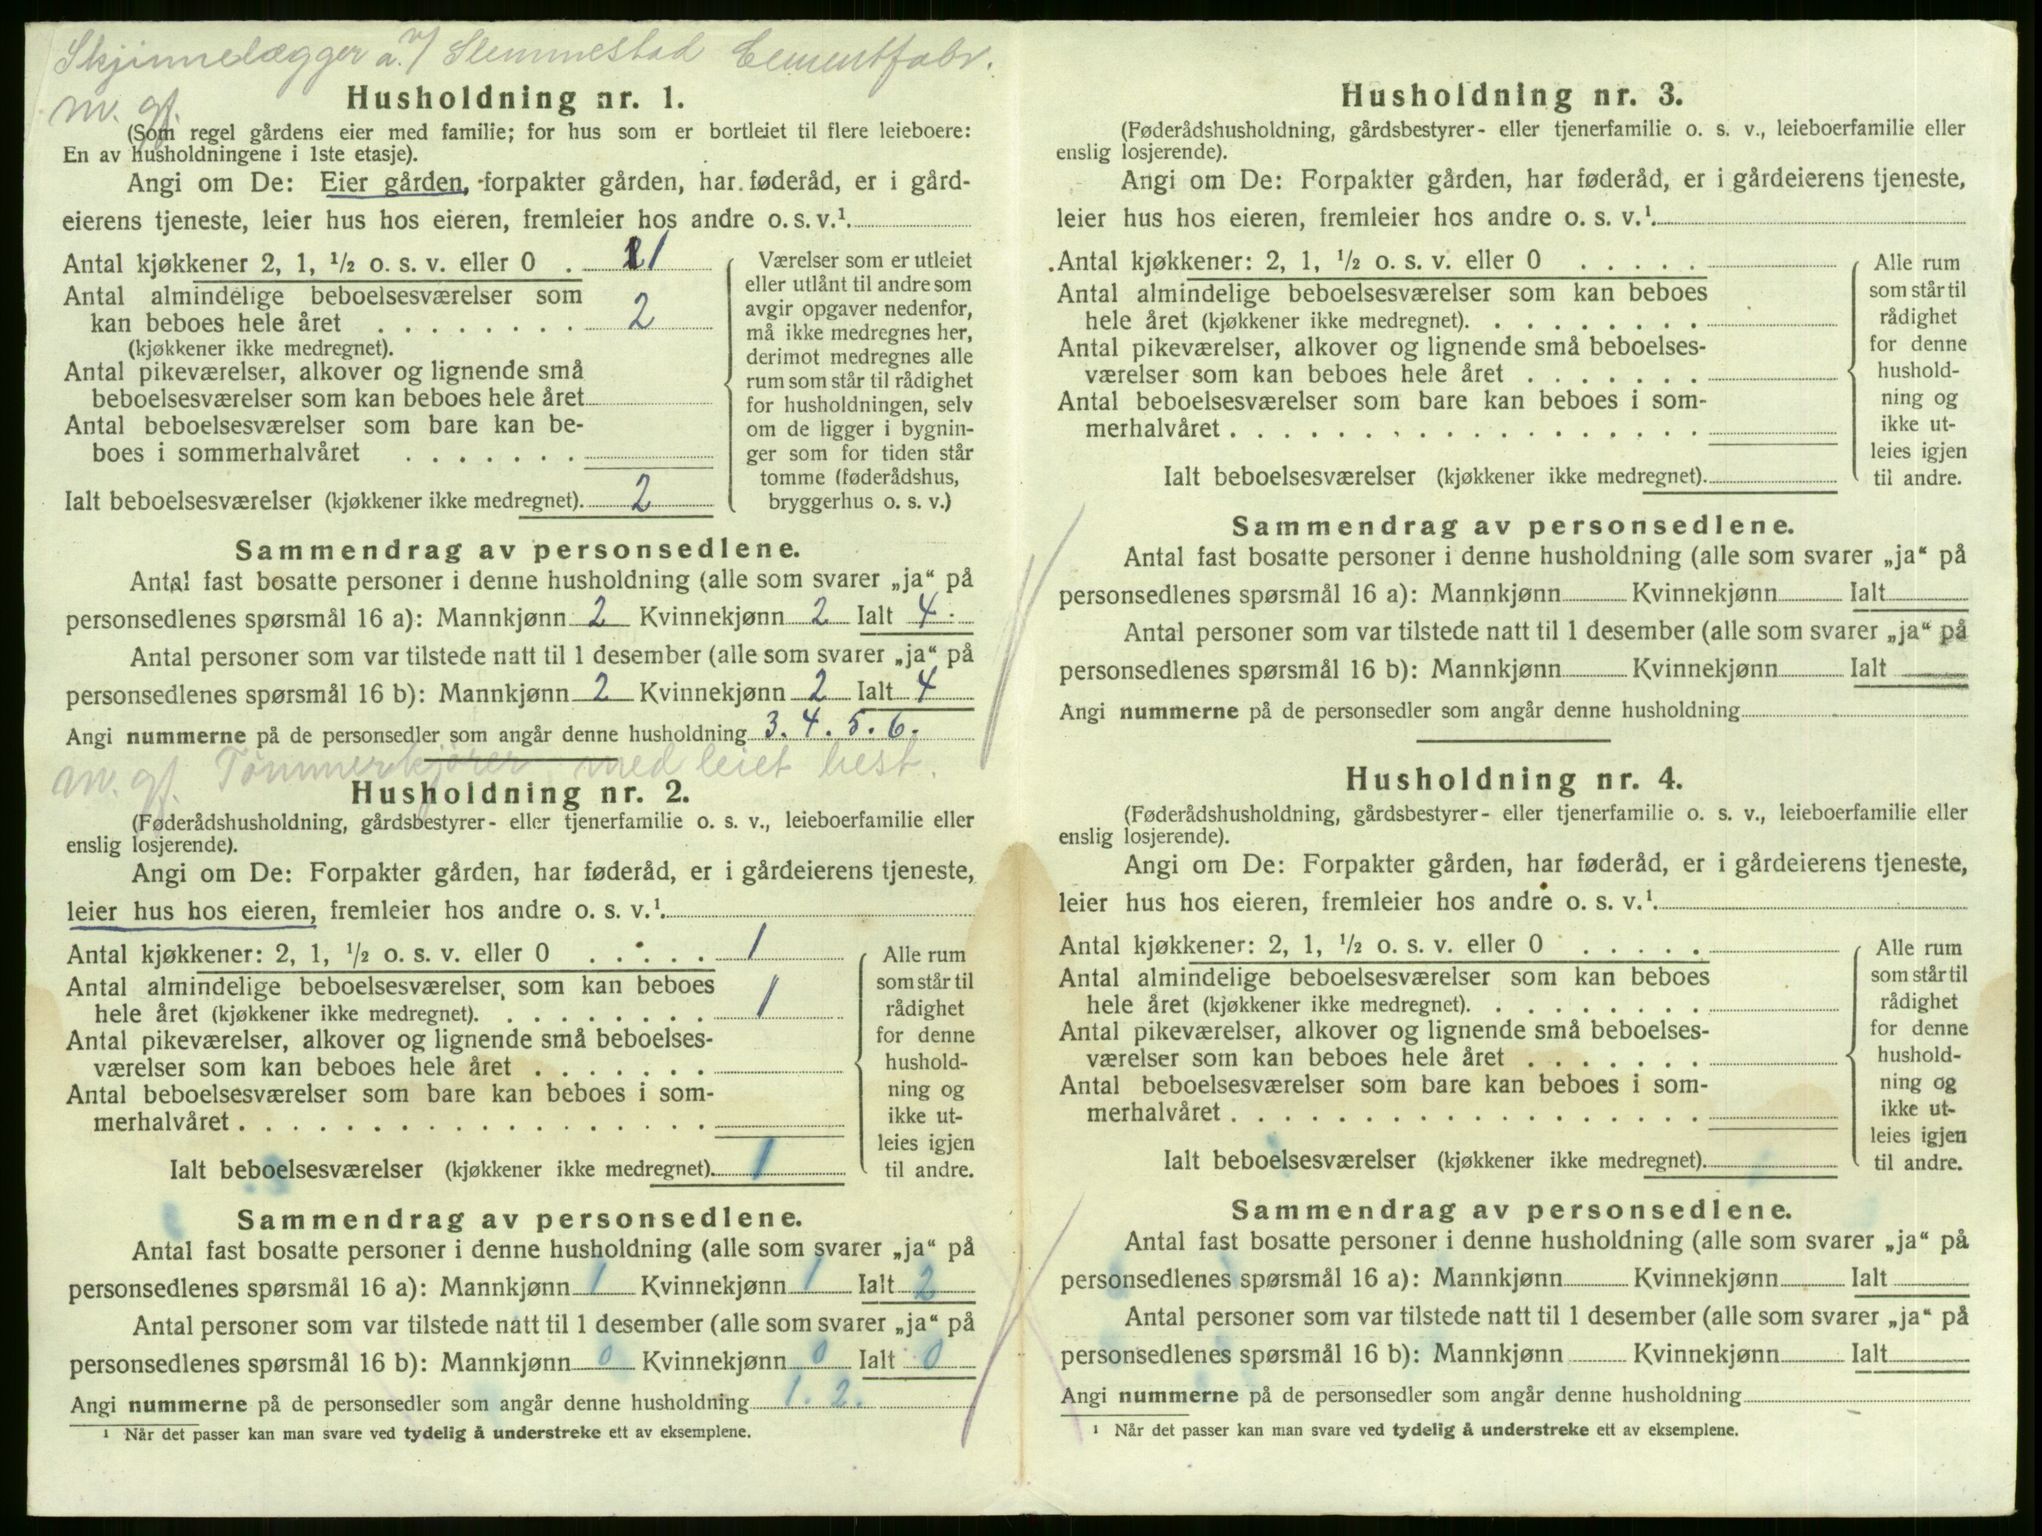 Skjinnelægger a.v/ Slemmestad Cementfabr.
m. gf.
Husholdning nr. 1.
(Som regel gårdens eier med familie; for hus som er bortleiet til flere leieboere:
En av husholdningene i 1ste etasje).
Angi om De: Eier gården, forpakter gården, har føderåd, er i gård-
eierens tjeneste, leier hus hos eieren, fremleier hos andre o. s. v.¹
Antal kjøkkener 2, 1, ½ o. s. v. eller 0 . 1
Antal almindelige beboelsesværelser som
kan beboes hele året . . . . . . . . 2
(kjøkkener ikke medregnet).
Antal pikeværelser, alkover og lignende små
beboelsesværelser som kan beboes hele året
Antal beboelsesværelser som bare kan be-
boes i sommerhalvåret . . . . . . .
Ialt beboelsesværelser (kjøkkener ikke medregnet). 2
Værelser som er utleiet
eller utlånt til andre som
avgir opgaver nedenfor,
må ikke medregnes her,
derimot medregnes alle
rum som står til rådighet
for husholdningen, selv
om de ligger i bygnin-
ger som for tiden står
tomme (føderådshus,
bryggerhus o. s. v.)
Sammendrag av personsedlene.
Antal fast bosatte personer i denne husholdning (alle som svarer „ja“ på
personsedlenes spørsmål 16 a): Mannkjønn 2 Kvinnekjønn 2 Ialt 4
Antal personer som var tilstede natt til 1 desember (alle som svarer „ja“ på
personsedlenes spørsmål 16 b): Mannkjønn 2 Kvinnekjønn 2 Ialt 4
Angi nummerne på de personsedler som angår denne husholdning 3. 4. 5. 6.
m. gf. Tømmerkjører med leiet hest.
Husholdning nr. 2.
(Føderådshusholdning, gårdsbestyrer- eller tjenerfamilie o. s. v., leieboerfamilie eller
enslig losjerende).
Angi om De: Forpakter gården, har føderåd, er i gårdeierens tjeneste,
leier hus hos eieren, fremleier hos andre o. s. v.¹
Antal kjøkkener: 2, 1, ½ o. s. v. eller 0 . . . . . 1
Antal almindelige beboelsesværelser som kan beboes
hele året (kjøkkener ikke medregnet). . . . . . . . . 1
Antal pikeværelser, alkover og lignende små beboelses-
værelser som kan beboes hele året . . . . . . .
Antal beboelsesværelser som bare kan beboes i som-
merhalvåret . . . . . . . . . . . . . . . . . .
Ialt beboelsesværelser (kjøkkener ikke medregnet). 1
Alle rum
som står til
rådighet
for denne
hushold-
ning og
ikke ut-
leies igjen
til andre.
Sammendrag av personsedlene.
Antal fast bosatte personer i denne husholdning (alle som svarer „ja“ på
personsedlenes spørsmål 16 a): Mannkjønn 1 Kvinnekjønn 1 Ialt 2
Antal personer som var tilstede natt til 1 desember (alle som svarer „ja“ på
personsedlenes spørsmål 16 b): Mannkjønn 0 Kvinnekjønn 0 Ialt 0
Angi nummerne på de personsedler som angår denne husholdning 1. 2.
¹ Når det passer kan man svare ved tydelig å understreke ett av eksemplene.
Husholdning nr. 3.
(Føderådshusholdning, gårdsbestyrer- eller tjenerfamilie o. s. v., leieboerfamilie eller
enslig losjerende).
Angi om De: Forpakter gården, har føderåd, er i gårdeierens tjeneste,
leier hus hos eieren, fremleier hos andre o. s. v.¹
Antal kjøkkener: 2, 1, ½ o. s. v. eller 0 . . . . .
Antal almindelige beboelsesværelser som kan beboes
hele året (kjøkkener ikke medregnet). . . . . . . . .
Antal pikeværelser, alkover og lignende små beboelses-
værelser som kan beboes hele året . . . . . . .
Antal beboelsesværelser som bare kan beboes i som-
merhalvåret . . . . . . . . . . . . . . . . . .
Ialt beboelsesværelser (kjøkkener ikke medregnet).
Alle rum
som står til
rådighet
for denne
hushold-
ning og
ikke ut-
leies igjen
til andre.
Sammendrag av personsedlene.
Antal fast bosatte personer i denne husholdning (alle som svarer „ja“ på
personsedlenes spørsmål 16 a): Mannkjønn Kvinnekjønn Ialt
Antal personer som var tilstede natt til 1 desember (alle som svarer „ja“ på
personsedlenes spørsmål 16 b): Mannkjønn Kvinnekjønn Ialt
Angi nummerne på de personsedler som angår denne husholdning
Husholdning nr. 4.
(Føderådshusholdning, gårdsbestyrer- eller tjenerfamilie o. s. v., leieboerfamilie eller
enslig losjerende).
Angi om De: Forpakter gården, har føderåd, er i gårdeierens tjeneste,
leier hus hos eieren, fremleier hos andre o. s. v.¹
Antal kjøkkener: 2, 1, ½ o. s. v. eller 0 . . . . .
Antal almindelige beboelsesværelser som kan beboes
hele året (kjøkkener ikke medregnet). . . . . . . . .
Antal pikeværelser, alkover og lignende små beboelses-
værelser som kan beboes hele året . . . . . . .
Antal beboelsesværelser som bare kan beboes i som-
merhalvåret . . . . . . . . . . . . . . . . . .
Ialt beboelsesværelser (kjøkkener ikke medregnet).
Alle rum
som står til
rådighet
for denne
hushold-
ning og
ikke ut-
leies igjen
til andre.
Sammendrag av personsedlene.
Antal fast bosatte personer i denne husholdning (alle som svarer „ja“ på
personsedlenes spørsmål 16 a): Mannkjønn Kvinnekjønn Ialt
Antal personer som var tilstede natt til 1 desember (alle som svarer „ja“ på
personsedlenes spørsmål 16 b): Mannkjønn Kvinnekjønn Ialt
Angi nummerne på de personsedler som angår denne husholdning
¹ Når det passer kan man svare ved tydelig å understreke ett av eksemplene.